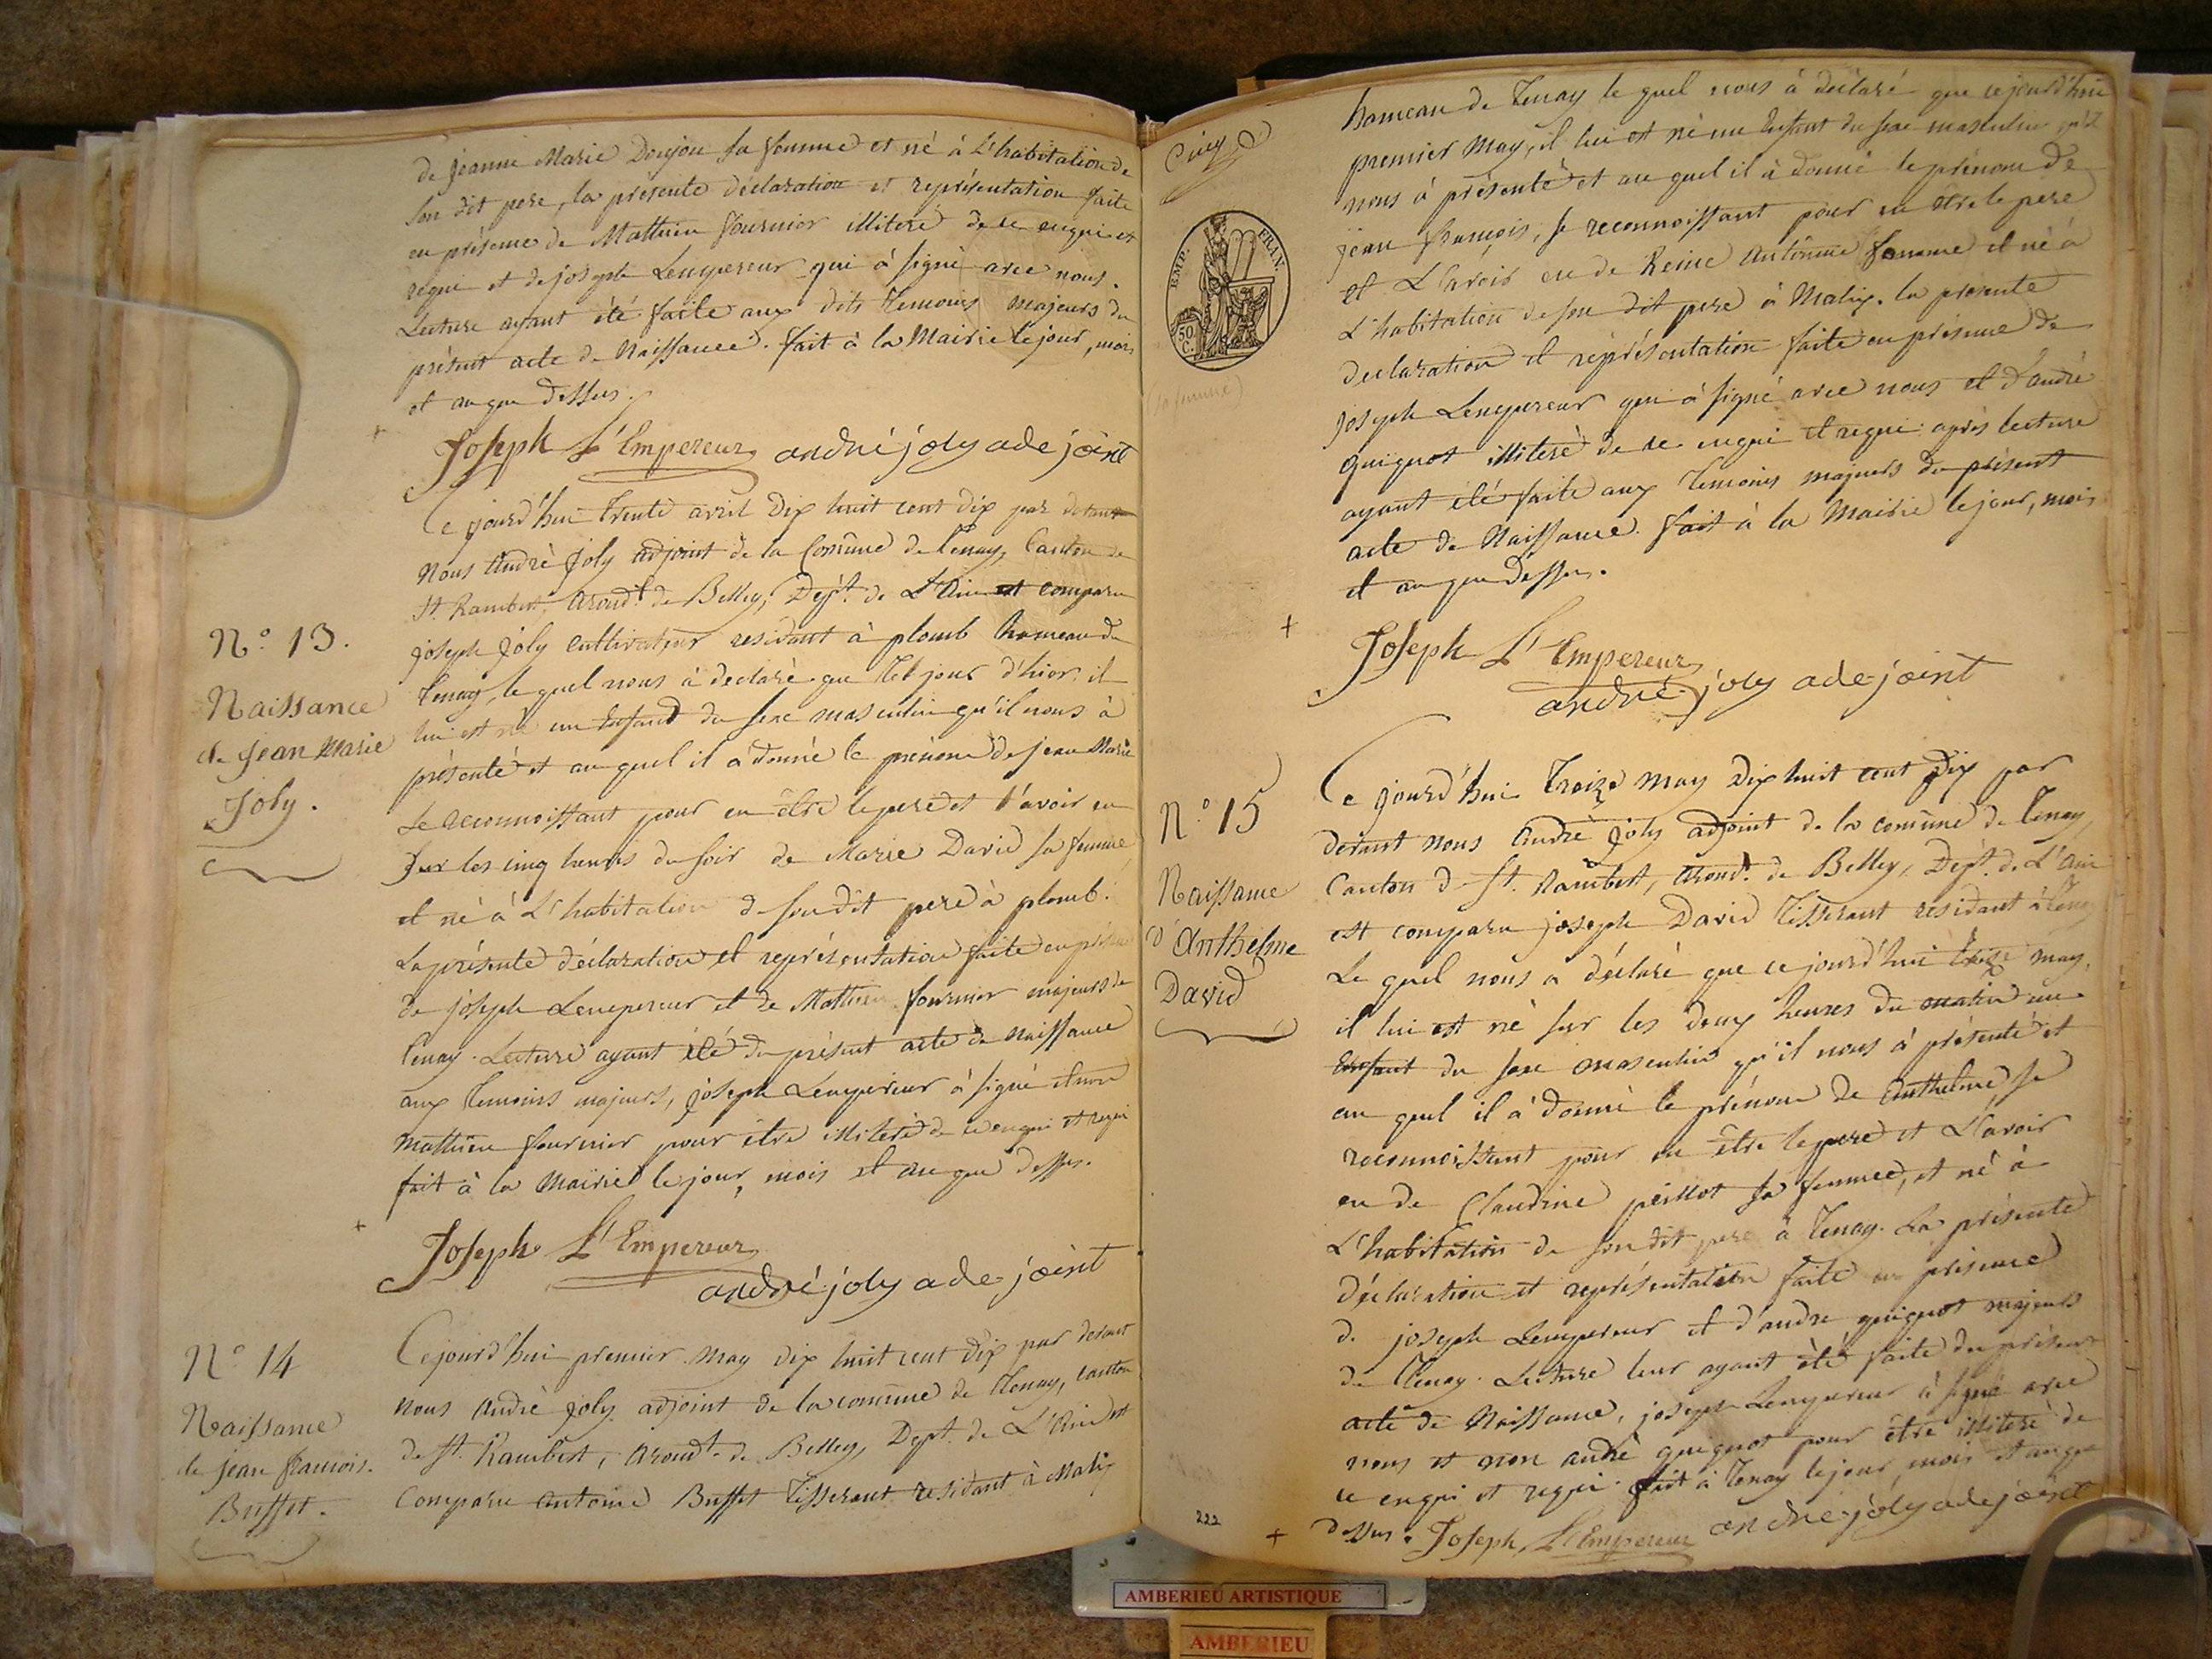 de jeanne Marie Donjon sa femme et né à L'habitation de
son dit pere, la presente déclaration et représentation faite
en présence de Mathieu fournier illiteré de ce enqui et
requi et de joseph Lempereur qui à signé avec nous.
Lecture ayant été faite aux dits temoins majeurs du
présent acte de Naissance. fait à la Mairie le jour, mois
et an que dessus.
Joseph L'Empereur andré joly ade joint
N.° 13.
Naissance
de Jean Marie
Joly.
Ce jourd'hui trente avril dix huit cent dix par devant
Nous André Joly adjoint de la Comûne de Tenay, Canton de
St. Rambert, arond.t de Belley, Dép.t de L'Ain est comparu
joseph Joly cultivateur residant à plomb hameau de
Tenay, le quel nous à declaré que le jour d'hier, il
lui est né un Enfant du sexe masculin qu'il nous à
présenté et au quel il à donné le prénom de jean Marie
se reconnoissant pour en être le pere et l'avoir eu
sur les cinq heures du soir de Marie David sa femme
et né à L'habitation de son dit pere à plomb.
La présente déclaration et représentation faite en présence
de joseph Lempereur et de Mathieu fournier majeurs de
Tenay. Lecture ayant été du présent acte de naissance
aux temoins majeurs, joseph Lempereur à signé et non
Mathieu fournier pour être illiteré de ce enqui et requi
fait à la Mairie le jour, mois et an que dessus.
Joseph L'Empereur
andré joly ade joint
N° 14
Naissance
de jean francois.
Buffet.
Cejourd'hui premier May dix huit cent dix par devant
nous André Joly adjoint de la comûne de Tenay, canton
de St. Rambert, Arond.t de Belley, Dept. de L'Ain est
Comparu Antoine Buffet Tisserant residant à Malix
hameau de Tenay le quel nous à déclaré que cejourd'hui
premier May, il lui est né un Enfant du sexe masculin qu'il
nous à présenté et au quel il à donné le prénom de
jean françois, se reconnoissant pour en être le pere
et L'avoir eu de Reine Antoinne femme et né à
L'habitation de son dit pere à Malix. la presente
declaration et représentation faite en présence de
joseph Lempereur qui à signé avec nous et d'andré
quiquot illiteré de ce enqui et requi après lecture
ayant été faite aux temoins majeurs du présent
acte de Naissance. fait à la Mairie le jour, mois
et an que dessus.
EMP. FRAN.
50 C.
(sa femme)
Joseph L'Empereur
andré joly ade joint
N.° 15
Naissance
d'Anthelme
David
Ce jourd'hui treize May dix huit cent dix par
devant nous André Joly adjoint de la comûne de Tenay,
Canton de St. Rambert, Arond.t de Belley, Dépt. de L'Ain
est comparu joseph David Tisserant residant à Tenay
Le quel nous a déclaré que ce jourd'hui treize may,
il lui est né sur les deux heures du matin un
Enfant du sexe masculin qu'il nous à présenté et
au quel il à donné le prénom de Anthelme, se
reconnoissant pour en être le pere et L'avoir
eu de Claudine peillot sa femme, et né à
L'habitation de son dit pere à Tenay. La présente
déclaration et représentation faite en présence
de joseph Lempereur et d'andré quiquot majeurs
de Tenay. Lecture leur ayant été faite du présent
acte de Naissance, joseph Lempereur à signé avec
nous et non andré quiquot pour être illiteré de
ce enqui et requi fait à Tenay le jour, mois et an que
dessus. Joseph L'Empereur andré joly ade joint
222
AMBERIEU ARTISTIQUE
AMBERIEU